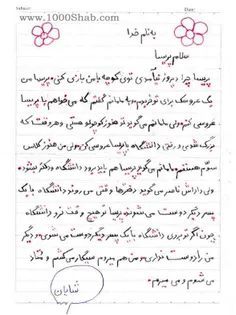 www.1000Shab.com
به نام خدا
سلام پریسا
پریسا چرا دیروز نیامدی توی کوچه با من بازی کنی. پریسا من
یک عروسک برای تو خریدم و به مامانم گفتم که می‌خواهم با پریسا
عروسی کنم ولی مامانم می‌گوید تو هنوز کوچولو هستی و هر وقت که
بزرگ شدی و رفتی دانشگاه با پریسا عروسی کن. ولی من هنوز کلاس
سوم هستم. مامانم می‌گوید پریسا هم باید برود دانشگاه و دکتر بشود.
ولی داداش ناصر می‌گوید دخترها وقتی می‌روند دانشگاه با یک
پسر دیگر دوست می‌شوند. پریسا تو هیچ وقت نرو دانشگاه
چون اگر تو بروی دانشگاه با یک پسر دیگر دوست می‌شوی و دیگر
من را دوست نداری. و من هم میروم سیگار می‌کشم و معتاد
می‌شوم و می‌میرم.
شایان